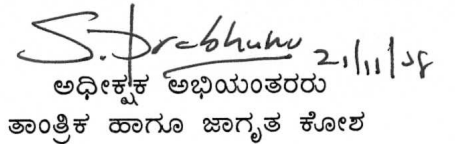 S. Prabhu 21/11/
ಅಧೀಕ್ಷಕ ಅಭಿಯಂತರರು
ತಾಂತ್ರಿಕ ಹಾಗೂ ಜಾಗೃತ ಕೋಶ